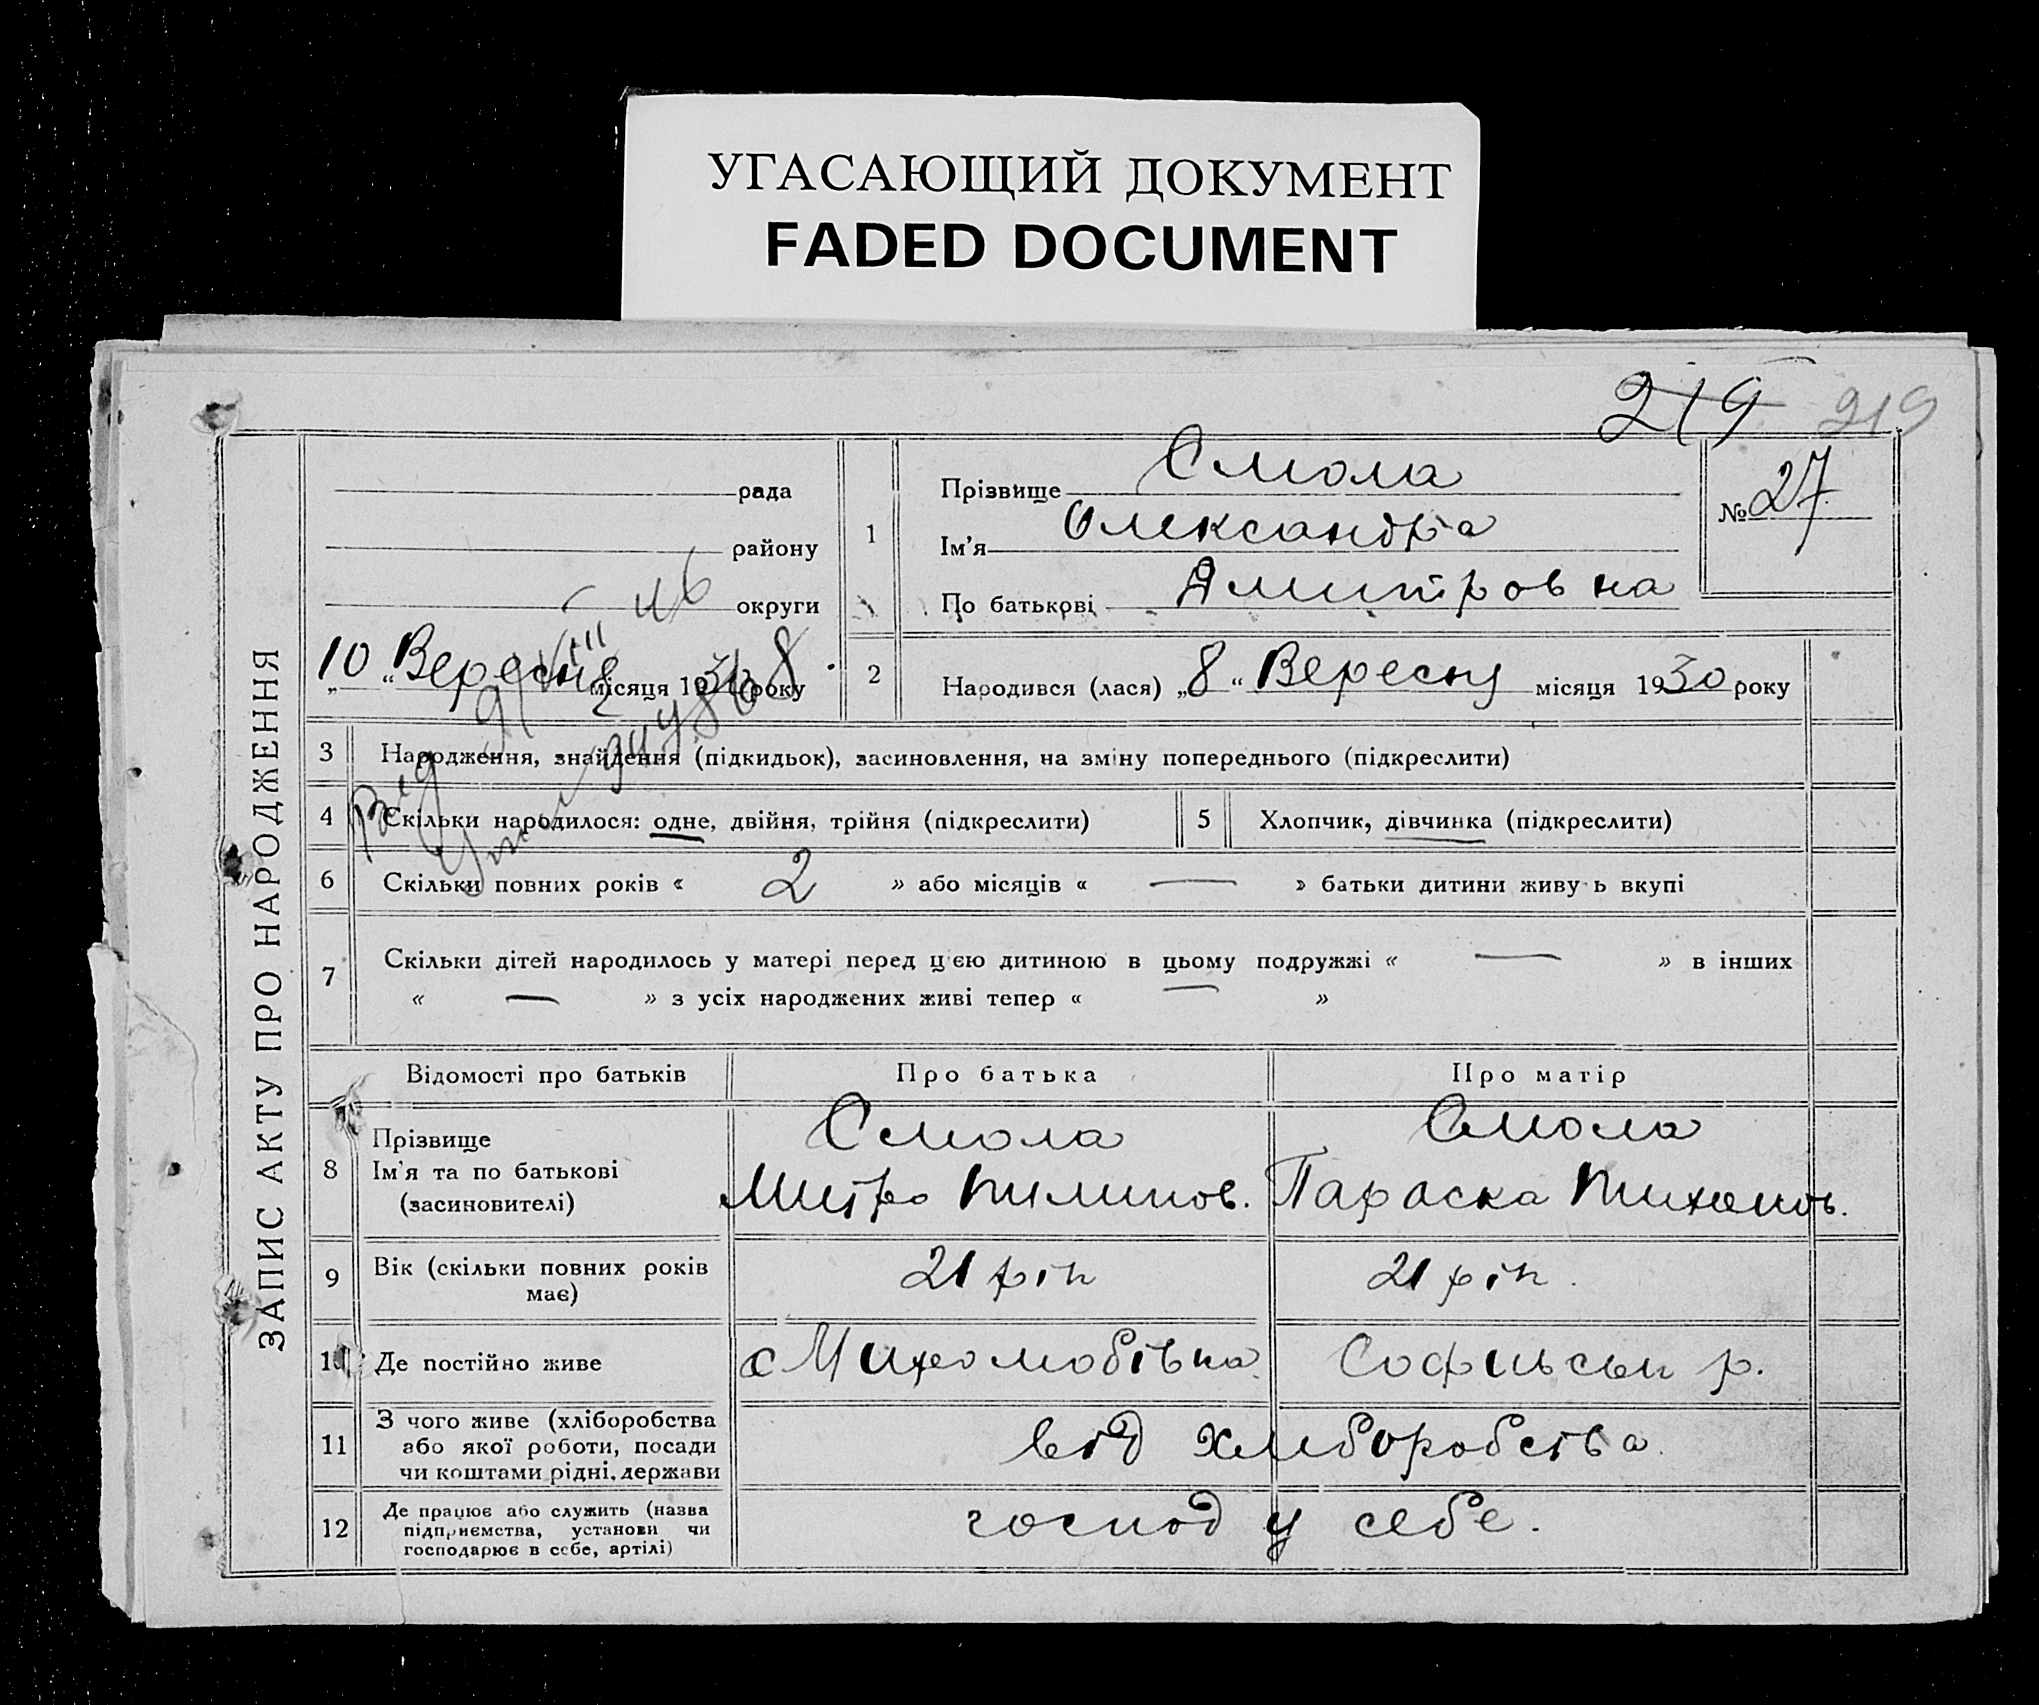 УГАСАЮЩИЙ ДОКУМЕНТ
FADED DOCUMENT
219 219
ЗАПИС АКТУ ПРО НАРОДЖЕННЯ
рада
району
округи
„10“ Вересня місяця 1930 року
1
Прізвище Смола
Ім'я Олександра
По батькові Дмитровна
№ 27
2
Народився (лася) „8“ Вересня місяця 1930 року
3 Народження, знайдення (підкидьок), засиновлення, на зміну попереднього (підкреслити)
4 Скільки народилося: одне, двійня, трійня (підкреслити) 5 Хлопчик, дівчинка (підкреслити)
6 Скільки повних років « 2 » або місяців « — » батьки дитини живуь вкупі
7 Скільки дітей народилось у матері перед цією дитиною в цьому подружжі « — » в інших
« — » з усіх народжених живі тепер « — »
Відомості про батьків Про батька Про матір
8 Прізвище Смола Смола
Ім'я та по батькові Митро Пилипов. Параска Тихонов.
(засиновителі)
9 Вік (скільки повних років має) 21 рік 21 рік.
10 Де постійно живе с Софиьськ р.
11 З чого живе (хліборобства
або якої роботи, посади
чи коштами рідні, держави
від хлиборобства.
12 Де працює або служить (назва
підприємства, установи чи
господарює в себе, артілі)
господ у себе.